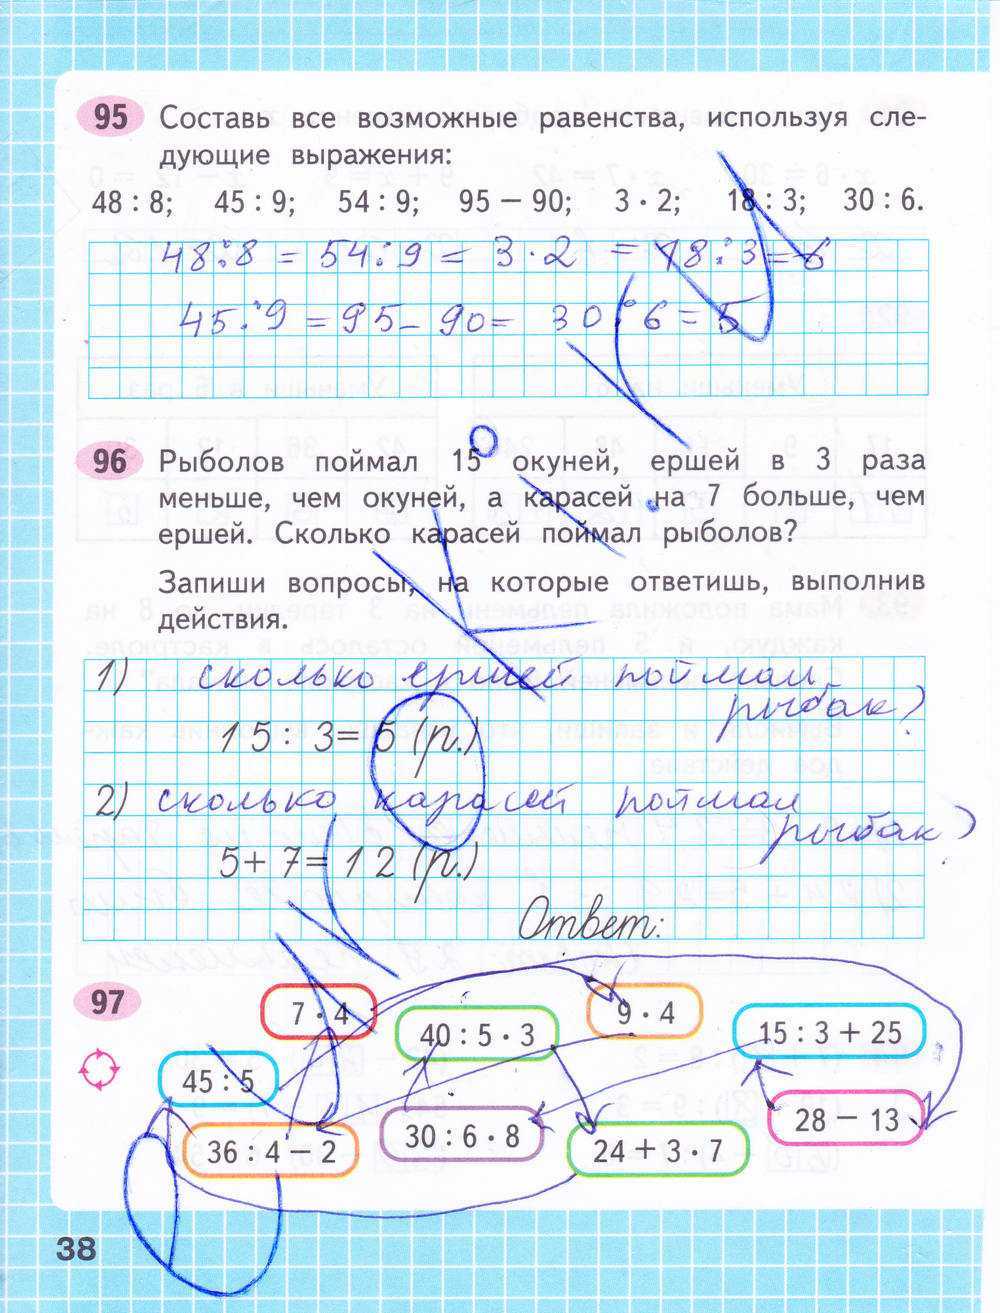 95 Составь все возможные равенства, используя сле-
дующие выражения:
48 : 8; 45 : 9; 54 : 9; 95 − 90; 3 · 2; 18 : 3; 30 : 6.
48:8 = 54:9 = 3 · 2 = 18:3 = 6
45:9 = 95 - 90 = 30:6 = 5
96 Рыболов поймал 15 окуней, ершей в 3 раза
меньше, чем окуней, а карасей на 7 больше, чем
ершей. Сколько карасей поймал рыболов?
Запиши вопросы, на которые ответишь, выполнив
действия.
1) сколько ершей поймал
рыбак?
15 : 3 = 5 (р.)
2) сколько карасей поймал
рыбак?
5 + 7 = 12 (р.)
Ответ:
97
7 · 4
9 · 4
40 : 5 · 3
15 : 3 + 25
45 : 5
28 − 13
30 : 6 · 8
36 : 4 − 2
24 + 3 · 7
38